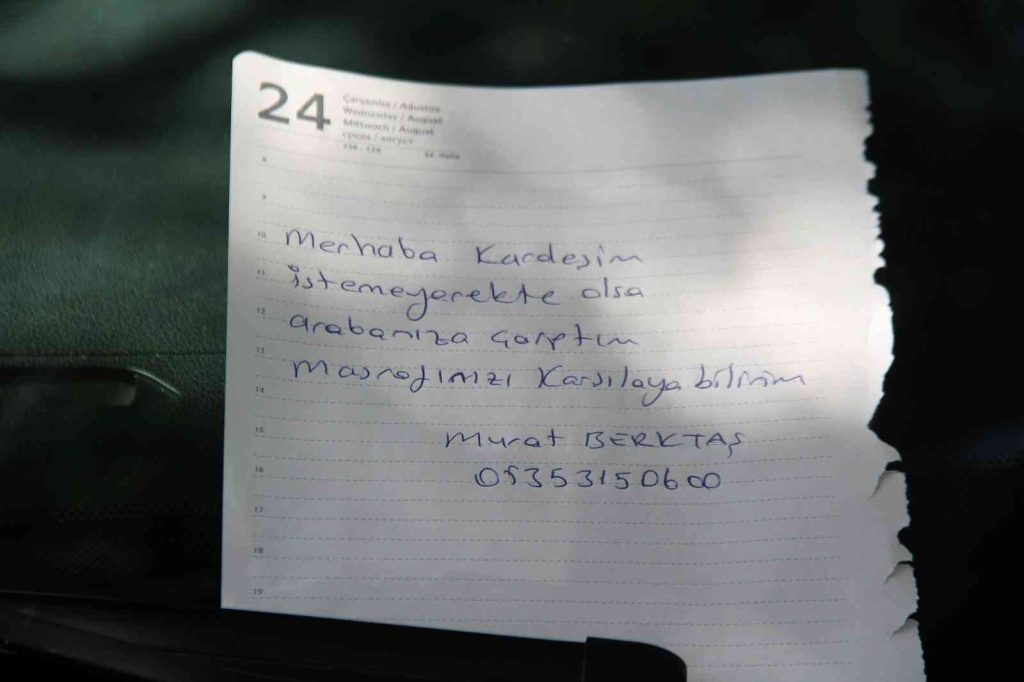 24
Çarşamba / Ağustos
Wednesday / August
Mittwoch / August
среда / август
236 - 129
8
9
10 Merhaba Kardeşim
11 İstemeyerekte olsa
12 arabanıza çarptım
13 Masrafımızı Karşılayabilirim
14
15 Murat BERKTAŞ
16 05353150600
17
18
19